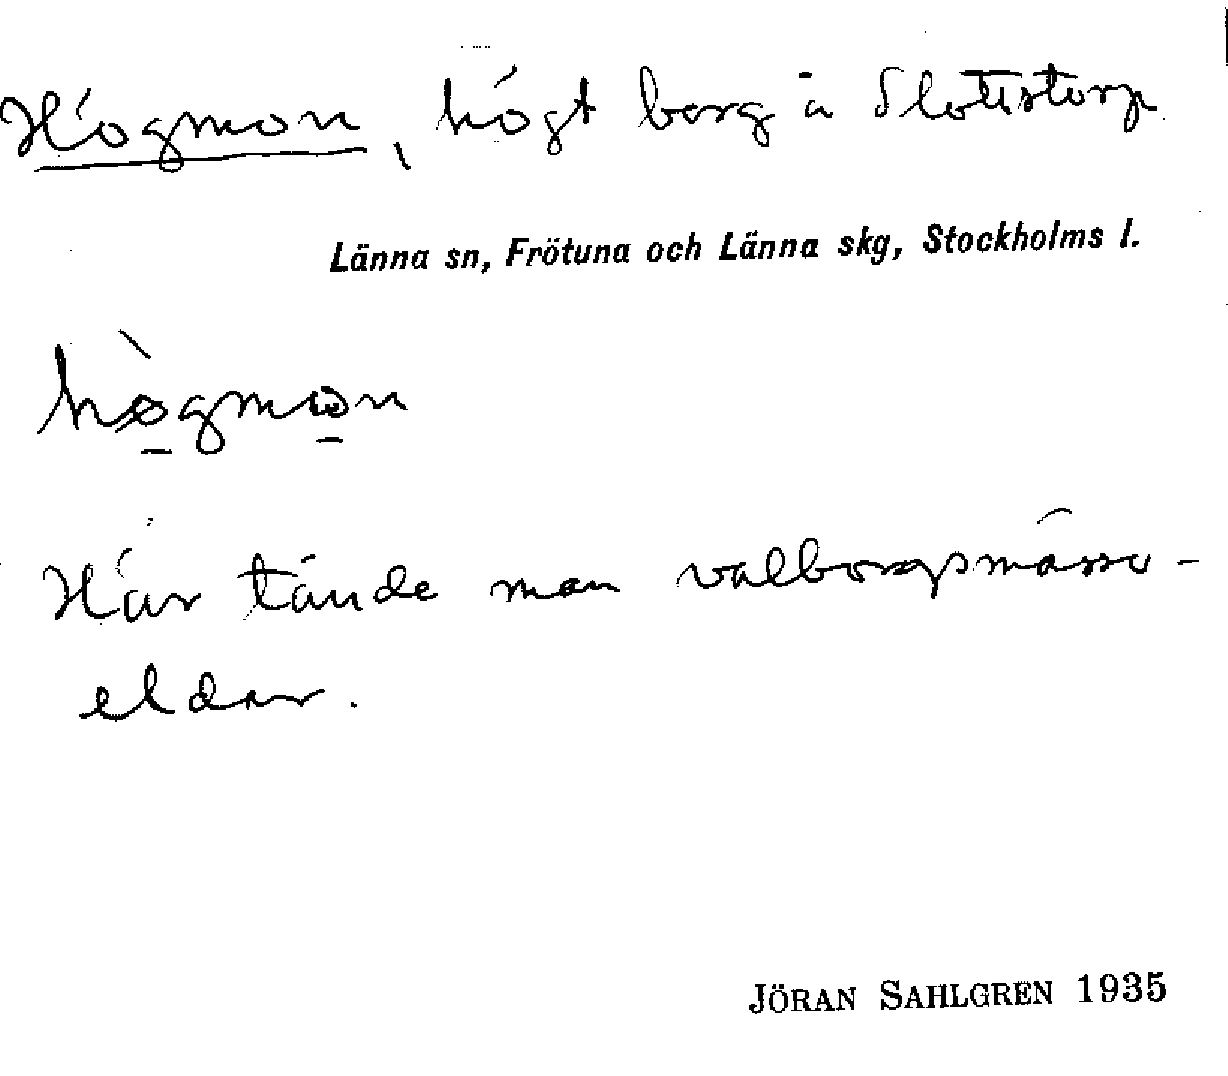 Högmon, högt berg å Slottstorp
Länna sn, Frötuna och Länna skg, Stockholms l.
hø̀gmon
Här tände man valborgsmässo-
eldar.
JÖRAN SAHLGREN 1935